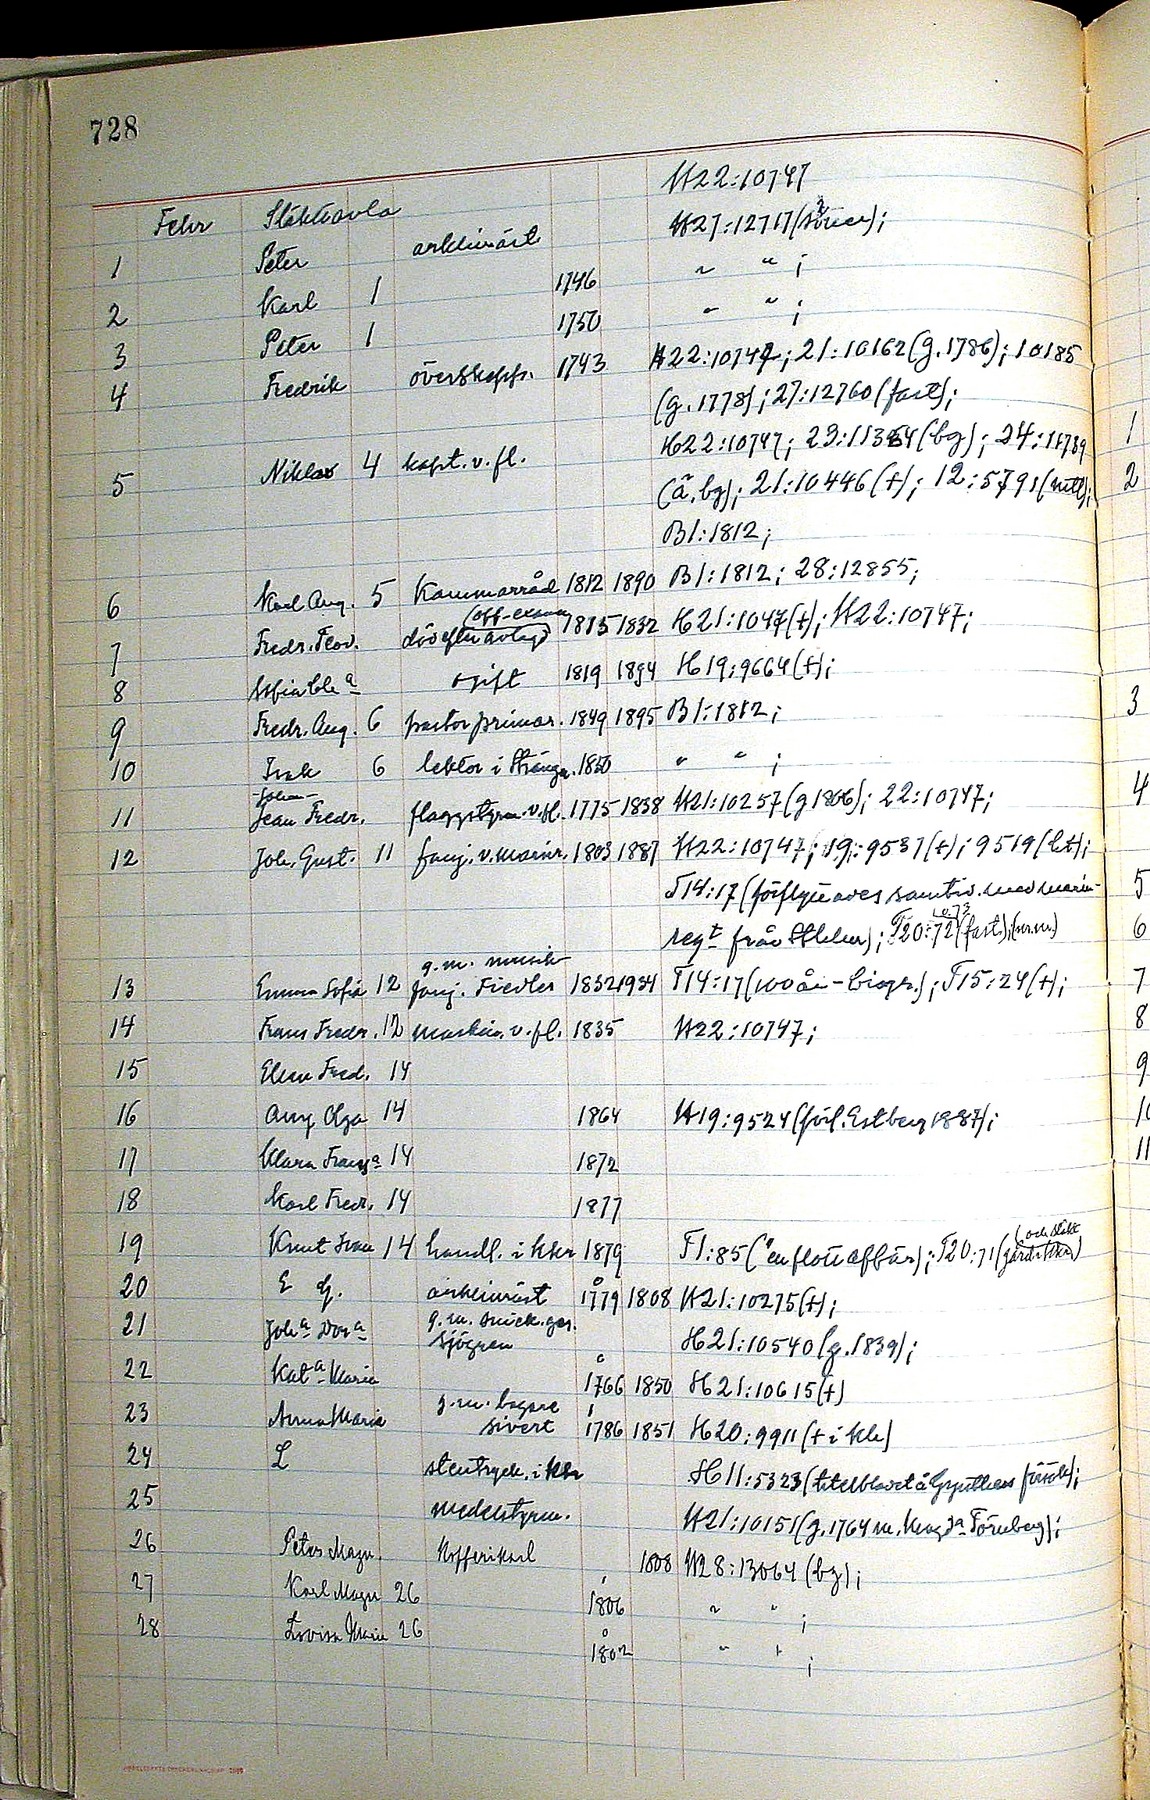 728
H22:10747
Fehr Släkttavla H27:12717 (söner);
1 Peter arklimäst " " ;
2 Karl 1 1746 " " ;
3 Peter 1 1750
4 Fredrik överskepps. 1743 H22:10747; 21:10162 (g. 1786); 10185
(g. 1778); 27:12760 (fast);
5 Niklas 4 kapt. v. fl. H22:10747; 23:11364 (bg); 24:11739
(å. bg); 21:10446 (+); 12:5791
B1:1812;
6 Karl Aug. 5 Kammarråd 1812 1890 B1:1812; 28:12855;
7 Fredr. Teod. döv efter avlagd (off-examen) 1815 1832 H21:1047 (+); H22:10747;
8 ogift 1819 1894 H19:9664 (+);
9 Fredr. Aug. 6 pastor primar. 1849 1895 B1:1812;
10 Isak 6 lektor i Sträng. 1850 " " ;
11 Johan Jean Fredr. flaggstyrm. v. fl. 1775 1838 H21:10257 (g 1806); 22:10747;
12 Joh. Gust. 11 fanj. v. marinr. 1803 1887 H22:10747; 19:9537 (+); 9519
T14:17 (förflyttades samtid. med marin-
regt från Sthlm); T20:72 o. 73 (fast);
13 Emma Sofia 12 g. m. musik fanj. Fiedler 1832 1934 T14:17 (100 år - biogr.); T15:24 (+);
14 Frans Fredr. 12 maskin. v. fl. 1835 H22:10747;
15 Ellen Fred. 14
16 Amy Olga 14 1864 H19:9524 (förl. Estberg 1887);
17 Klara Franza 14 1872
18 Karl Fredr. 14 1877
19 Knut Ivan 14 handl. i kkr 1879 T1:85 ("en flott affär); T20:71
20 E G. arklimäst 1779 1808 H21:10275 (+);
21 Joha Dora g. m. snick. ges. Sjögren H21:10540 (g. 1839);
22 Kata Maria 1766 1850 H21:10615 (+)
23 Anna Maria g. m. bagare Sivert 1786 1851 H20:9911 (+ i kk)
24 L stentryck. i kkr H11:5323
25 medelstyrm. H21:10151
26 Peter Magn. Kofferikarl 1808 H28:13064 (bg);
27 Karl Magn 26 1806 " " ;
28 Lovisa Maria 26 1802 " " ;
1
2
3
4
5
6
7
8
9
10
11